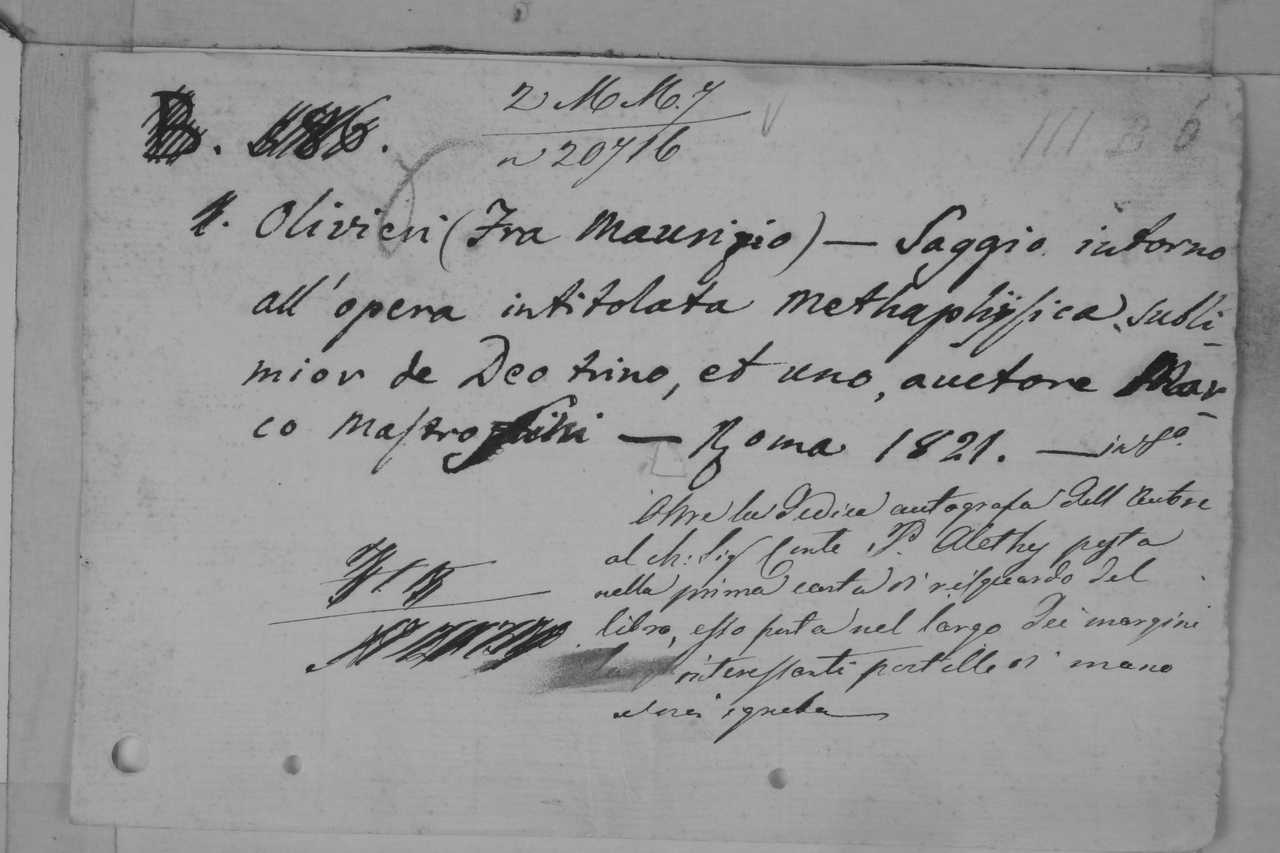 2 M M. 7
n 20716
III B 6
1. Olivieri (Fra Maurizio) — Saggio intorno
all' opera intitolata Methaphÿsica subli-
mior de Deo trino, et uno, auctore Mar-
co Mastrofini — Roma 1821. — in 8°.
Oltre la dedica autografa dell' Autore
al ch: Sig Conte P. Alethy posta
nella prima carta di risguardo del
libro, esso porta nel largo dei margini
interessanti postille di mano
ignota